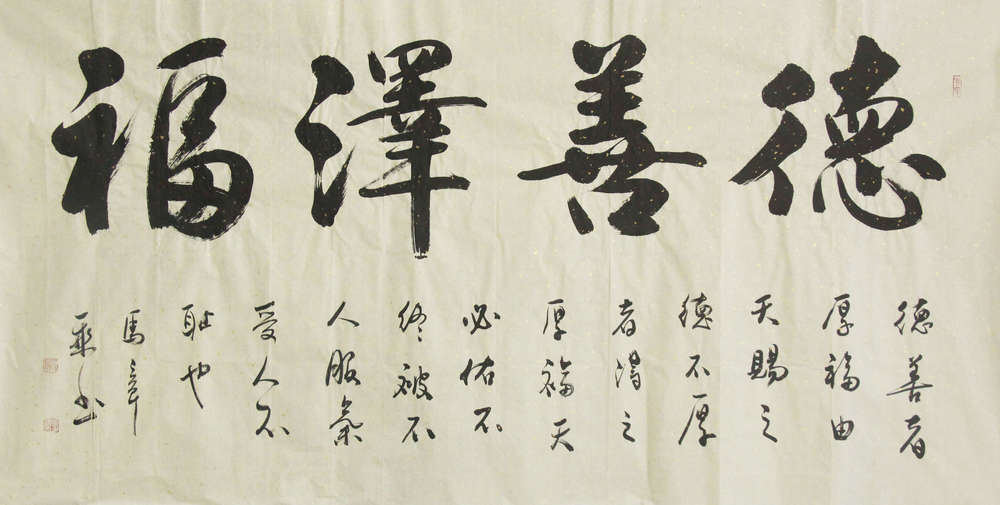 德善澤福
德善者
厚福由
天賜之
德不厚
者得之
厚福天
必佑不
終被不
人服氣
受人不
耻也
馬章
乘书